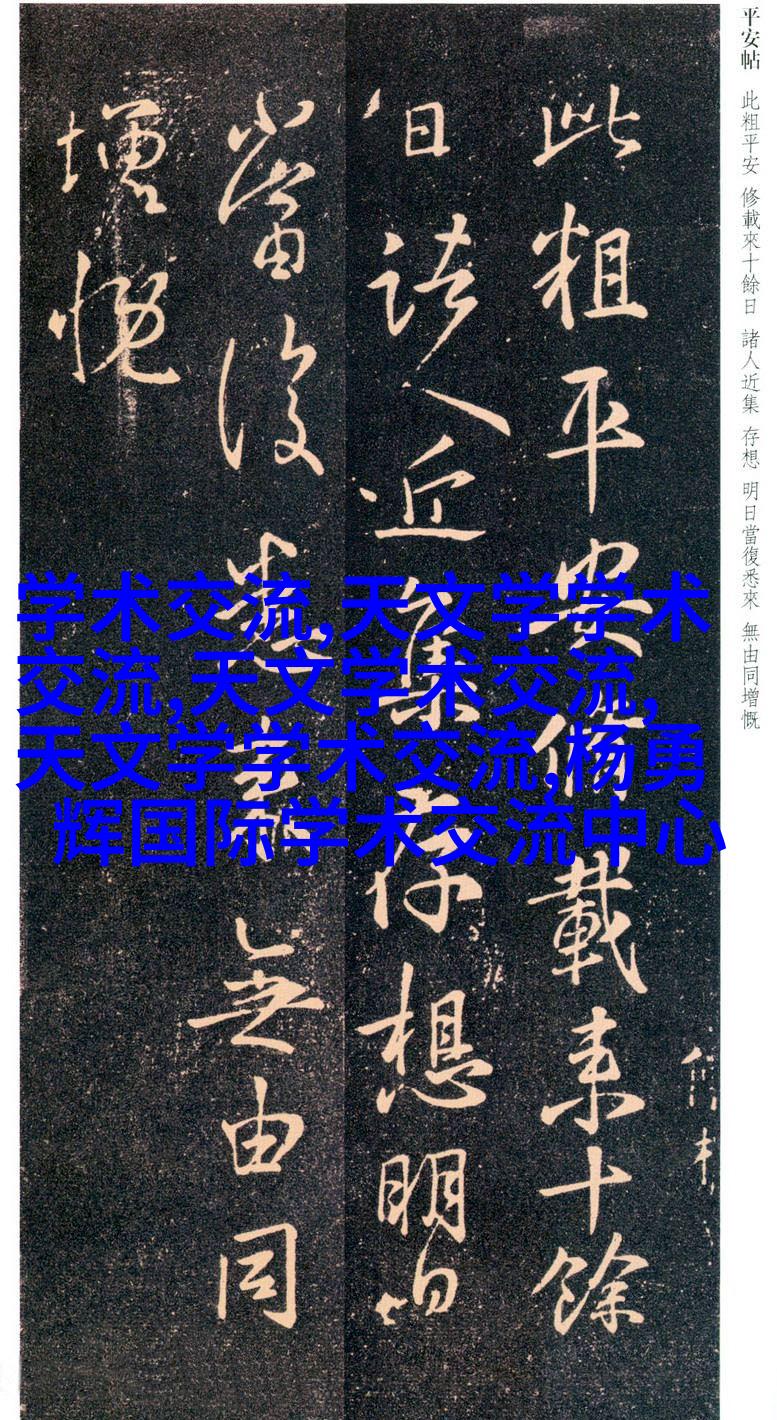 平安帖 此粗平安 修載來十餘日 諸人近集 存想 明日當復悉來 無由同增慨
此粗平安修載来十餘
日諸人近集存想明日
當復悉来無由同
增慨
学术交流,天文学学术
交流,天文学术交流,
天文学学术交流,杨勇
辉国际学术交流中心